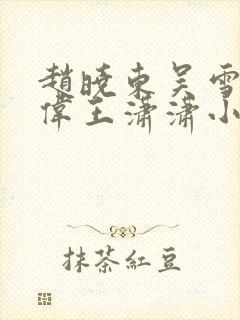 趙曉東吳雪
偉王瀟瀟小
抹茶紅豆